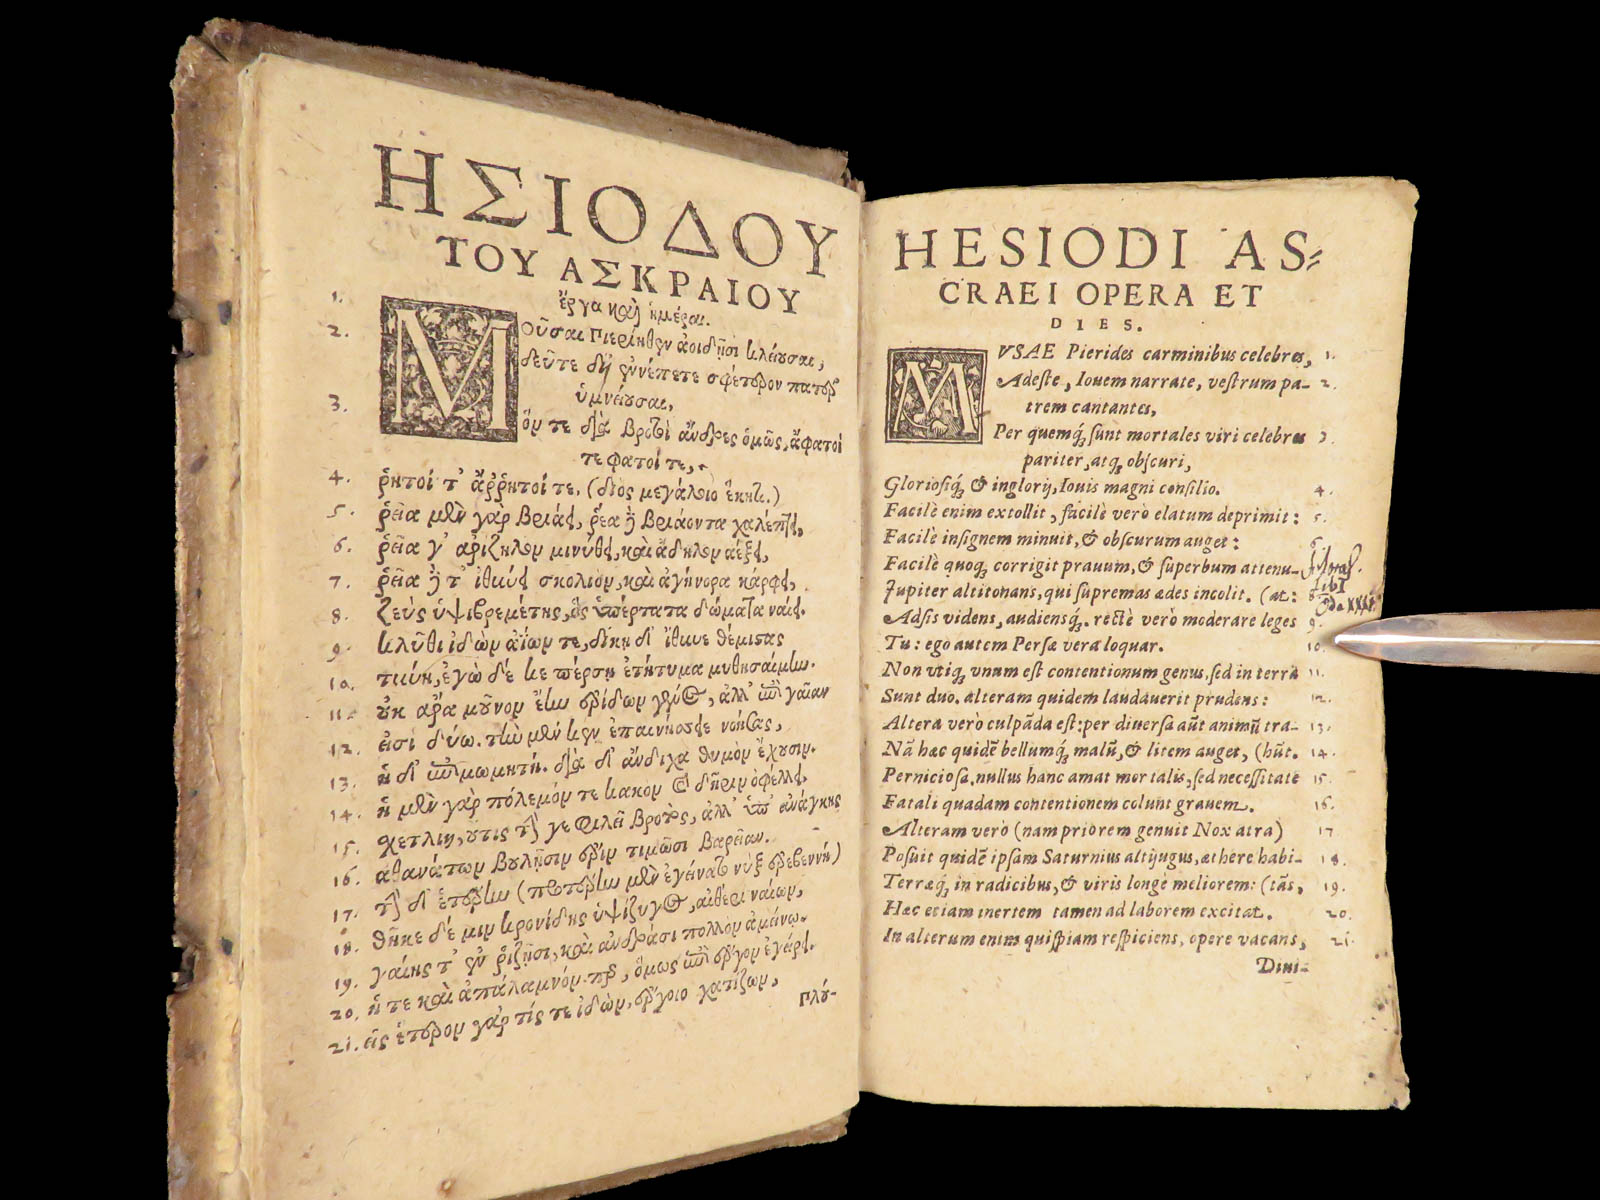 ΗΣΙΟΔΟΥ
ΤΟΥ ΑΣΚΡΑΙΟΥ
1. ἔργα καὶ ἡμέραι.
2. ΜΟῦσαι Πιερίηθεν ἀοιδῇσι κλέιουσαι,
δεῦτε δὴ ἐννέπετε σφέτερον πατέρ'
ὑμνέιουσαι,
3. ὅν τε διὰ βροτοὶ ἄνδρες ὁμῶς, ἄφατοί
τε φατοί τε,
4. ῥητοί τ' ἄῤῥητοί τε. (διὸς μεγάλοιο ἕκητι.)
5. ῥεῖα μὲν γὰρ βριάει, ῥέα δὲ βριάοντα χαλέπτει,
6. ῥεῖα γ' ἀρίζηλον μινύθει, καὶ ἄδηλον ἀέξει,
7. ῥεῖα δέ τ' ἰθύνει σκολιὸν, καὶ ἀγήνορα κάρφει,
8. ζεὺς ὑψιβρεμέτης, ὃς ὑπέρτατα δώματα ναίει.
9. κλῦθι ἰδὼν ἀΐων τε, δίκῃ δ' ἴθυνε θέμιστας
10. τύνη, ἐγὼ δέ κε πέρσῃ ἐτήτυμα μυθησαίμην.
11. οὐκ ἄρα μοῦνον ἔην ἐρίδων γένος, ἀλλ' ἐπὶ γαῖαν
12. εἰσὶ δύω. τὴν μὲν κεν ἐπαινήσειε νοήσας,
13. ἡ δ' ἐπιμωμητή. διὰ δ' ἄνδιχα θυμὸν ἔχουσιν.
14. ἡ μὲν γὰρ πόλεμόν τε κακὸν καὶ δῆριν ὀφέλλει,
15. σχετλίη, οὔτις τήν γε φιλεῖ βροτὸς, ἀλλ' ὑπ' ἀνάγκης
16. ἀθανάτων βουλῇσιν ἔριν τιμῶσι βαρεῖαν.
17. τὴν δ' ἑτέρην (προτέρην μὲν ἐγείνατο νὺξ ἐρεβεννή)
18. θῆκε δέ μιν κρονίδης ὑψίζυγος, αἰθέρι ναίων,
19. γαίης τ' ἐν ῥίζῃσι, καὶ ἀνδράσι πολλὸν ἀμείνω.
20. ἥ τε καὶ ἀπάλαμνόν περ, ὅμως ἐπὶ ἔργον ἐγείρει.
21. εἰς ἕτερον γάρ τίς τε ἰδὼν, ἔργοιο χατίζων,
πλού-
HESIODI AS-
CRAEI OPERA ET
DIES.
MVSAE Pierides carminibus celebres, 1.
Adeste, Iouem narrate, vestrum pa- 2.
trem cantantes,
Per quemq́; sunt mortales viri celebres 3.
pariter, atq; obscuri,
Gloriosiq́; & inglorij, Iouis magni consilio. 4.
Facilè enim extollit, facilè verò elatum deprimit: 5.
Facilè insignem minuit, & obscurum auget: 6
Facilè quoq; corrigit prauum, & superbum attenu-
Jupiter altitonans, qui supremas ædes incolit. (at: 8
Adsis videns, audiensq́;. rectè verò moderare leges 9.
Tu: ego autem Persæ vera loquar. 10.
Non vtiq; vnum est contentionum genus, sed in terra 11.
Sunt duo. alteram quidem laudauerit prudens: 12.
Altera verò culpãda est: per diuersa aũt animũ tra- 13.
Nã hæc quidẽ bellumq́; malũ, & litem auget, (hũt. 14.
Perniciosa. nullus hanc amat mortalis, sed necessitate 15.
Fatali quadam contentionem colunt grauem. 16.
Alteram verò (nam priorem genuit Nox atra) 17
Posuit quidẽ ipsam Saturnius altijugus, æthere habi- 18.
Terræq́; in radicibus, & viris longe meliorem: (tãs, 19.
Hæc etiam inertem tamen ad laborem excitat. 20.
In alterum enim quispiam respiciens, opere vacans, 21.
Diui-